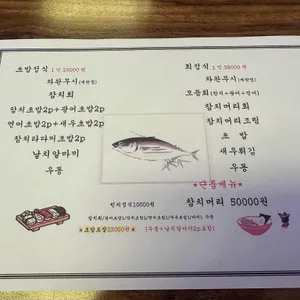 초밥정식 1인 25000원
차완무시(계란찜)
참치회
참치초밥2p+광어초밥2p
연어초밥2p+새우초밥2p
참치타다끼초밥2p
날치알마끼
우동
회정식 1인 38000원
차완무시(계란찜)
모듬회(참치+광어+연어)
참치머리회
참치머리조림
초 밥
새우튀김
우동
★단품메뉴★
런치정식10000원
참치머리 50000원
★초밥포장23000원★ (우동+날치알마끼2p포함)